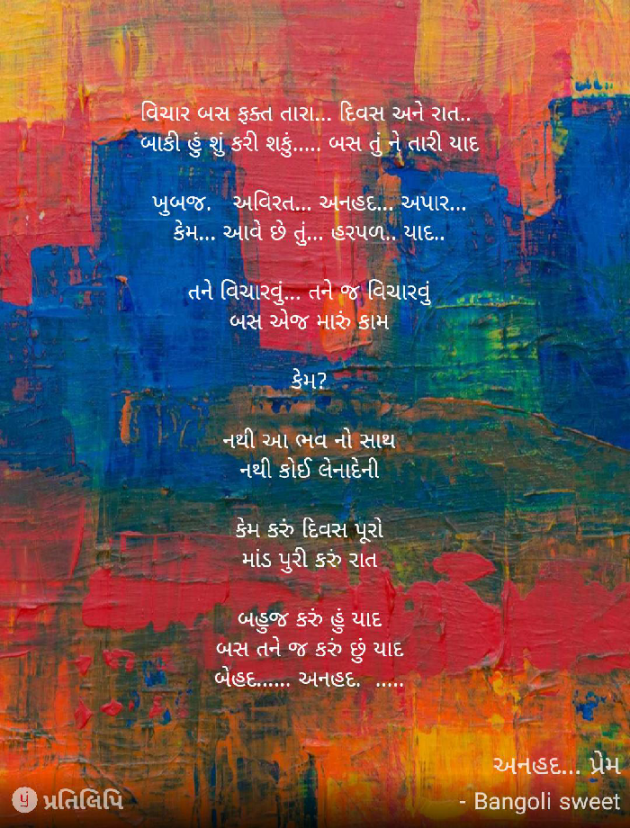 વિચાર બસ ફક્ત તારા... દિવસ અને રાત..
બાકી હું શું કરી શકું..... બસ તું ને તારી યાદ
ખુબજ. અવિરત... અનહદ... અપાર...
કેમ... આવે છે તું... હરપળ.. યાદ..
તને વિચારવું... તને જ વિચારવું
બસ એજ મારું કામ
કેમ?
નથી આ ભવ નો સાથ
નથી કોઈ લેનાદેની
કેમ કરું દિવસ પૂરો
માંડ પુરી કરું રાત
બહુજ કરું હું યાદ
બસ તને જ કરું છું યાદ
બેહદ...... અનહદ. .....
અનહદ... પ્રેમ
- Bangoli sweet
પ્રતિલિપિ